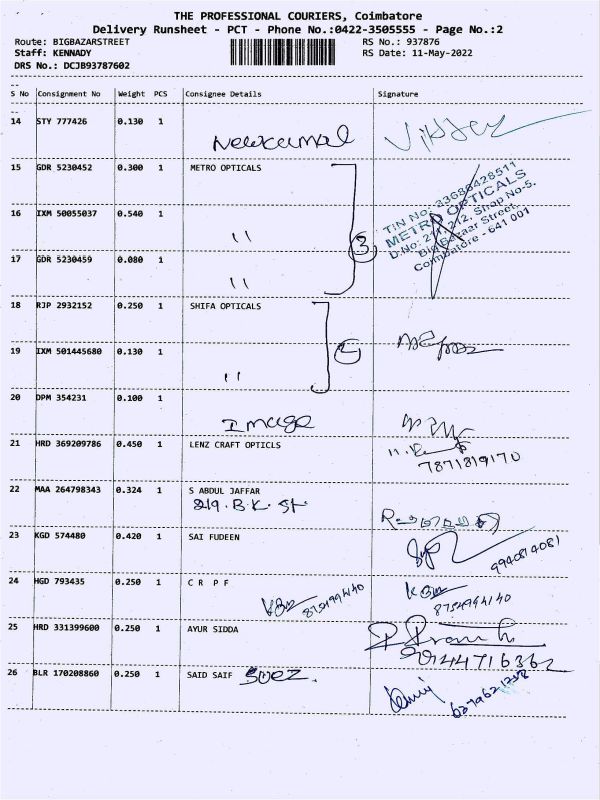 THE PROFESSIONAL COURIERS, Coimbatore
Delivery Runsheet - PCT - Phone No.:0422-3505555 - Page No.:2
Route: BIGBAZARSTREET RS No.: 937876
Staff: KENNADY RS Date: 11-May-2022
DRS No.: DCJB93787602
S No Consignment No Weight PCS Consignee Details Signature
14 STY 777426 0.130 1
15 GDR 5230452 0.300 1 METRO OPTICALS
16 IXM 50055037 0.540 1 " 3
TIN No: 33686428511
METRO OPTICALS
D.No: 211, 212, Shop No-5,
Big Bazaar Street,
Coimbatore - 641 001
17 GDR 5230459 0.080 1 "
18 RJP 2932152 0.250 1 SHIFA OPTICALS
19 IXM 501445680 0.130 1 "
20 DPM 354231 0.100 1 Image
21 HRD 369209786 0.450 1 LENZ CRAFT OPTICLS
7871819170
22 MAA 264798343 0.324 1 S ABDUL JAFFAR
219. B.K. St
23 KGD 574480 0.420 1 SAI FUDEEN
9940814081
24 HGD 793435 0.250 1 C R P F
25 HRD 331399600 0.250 1 AYUR SIDDA
9144716362
26 BLR 170208860 0.250 1 SAID SAIF